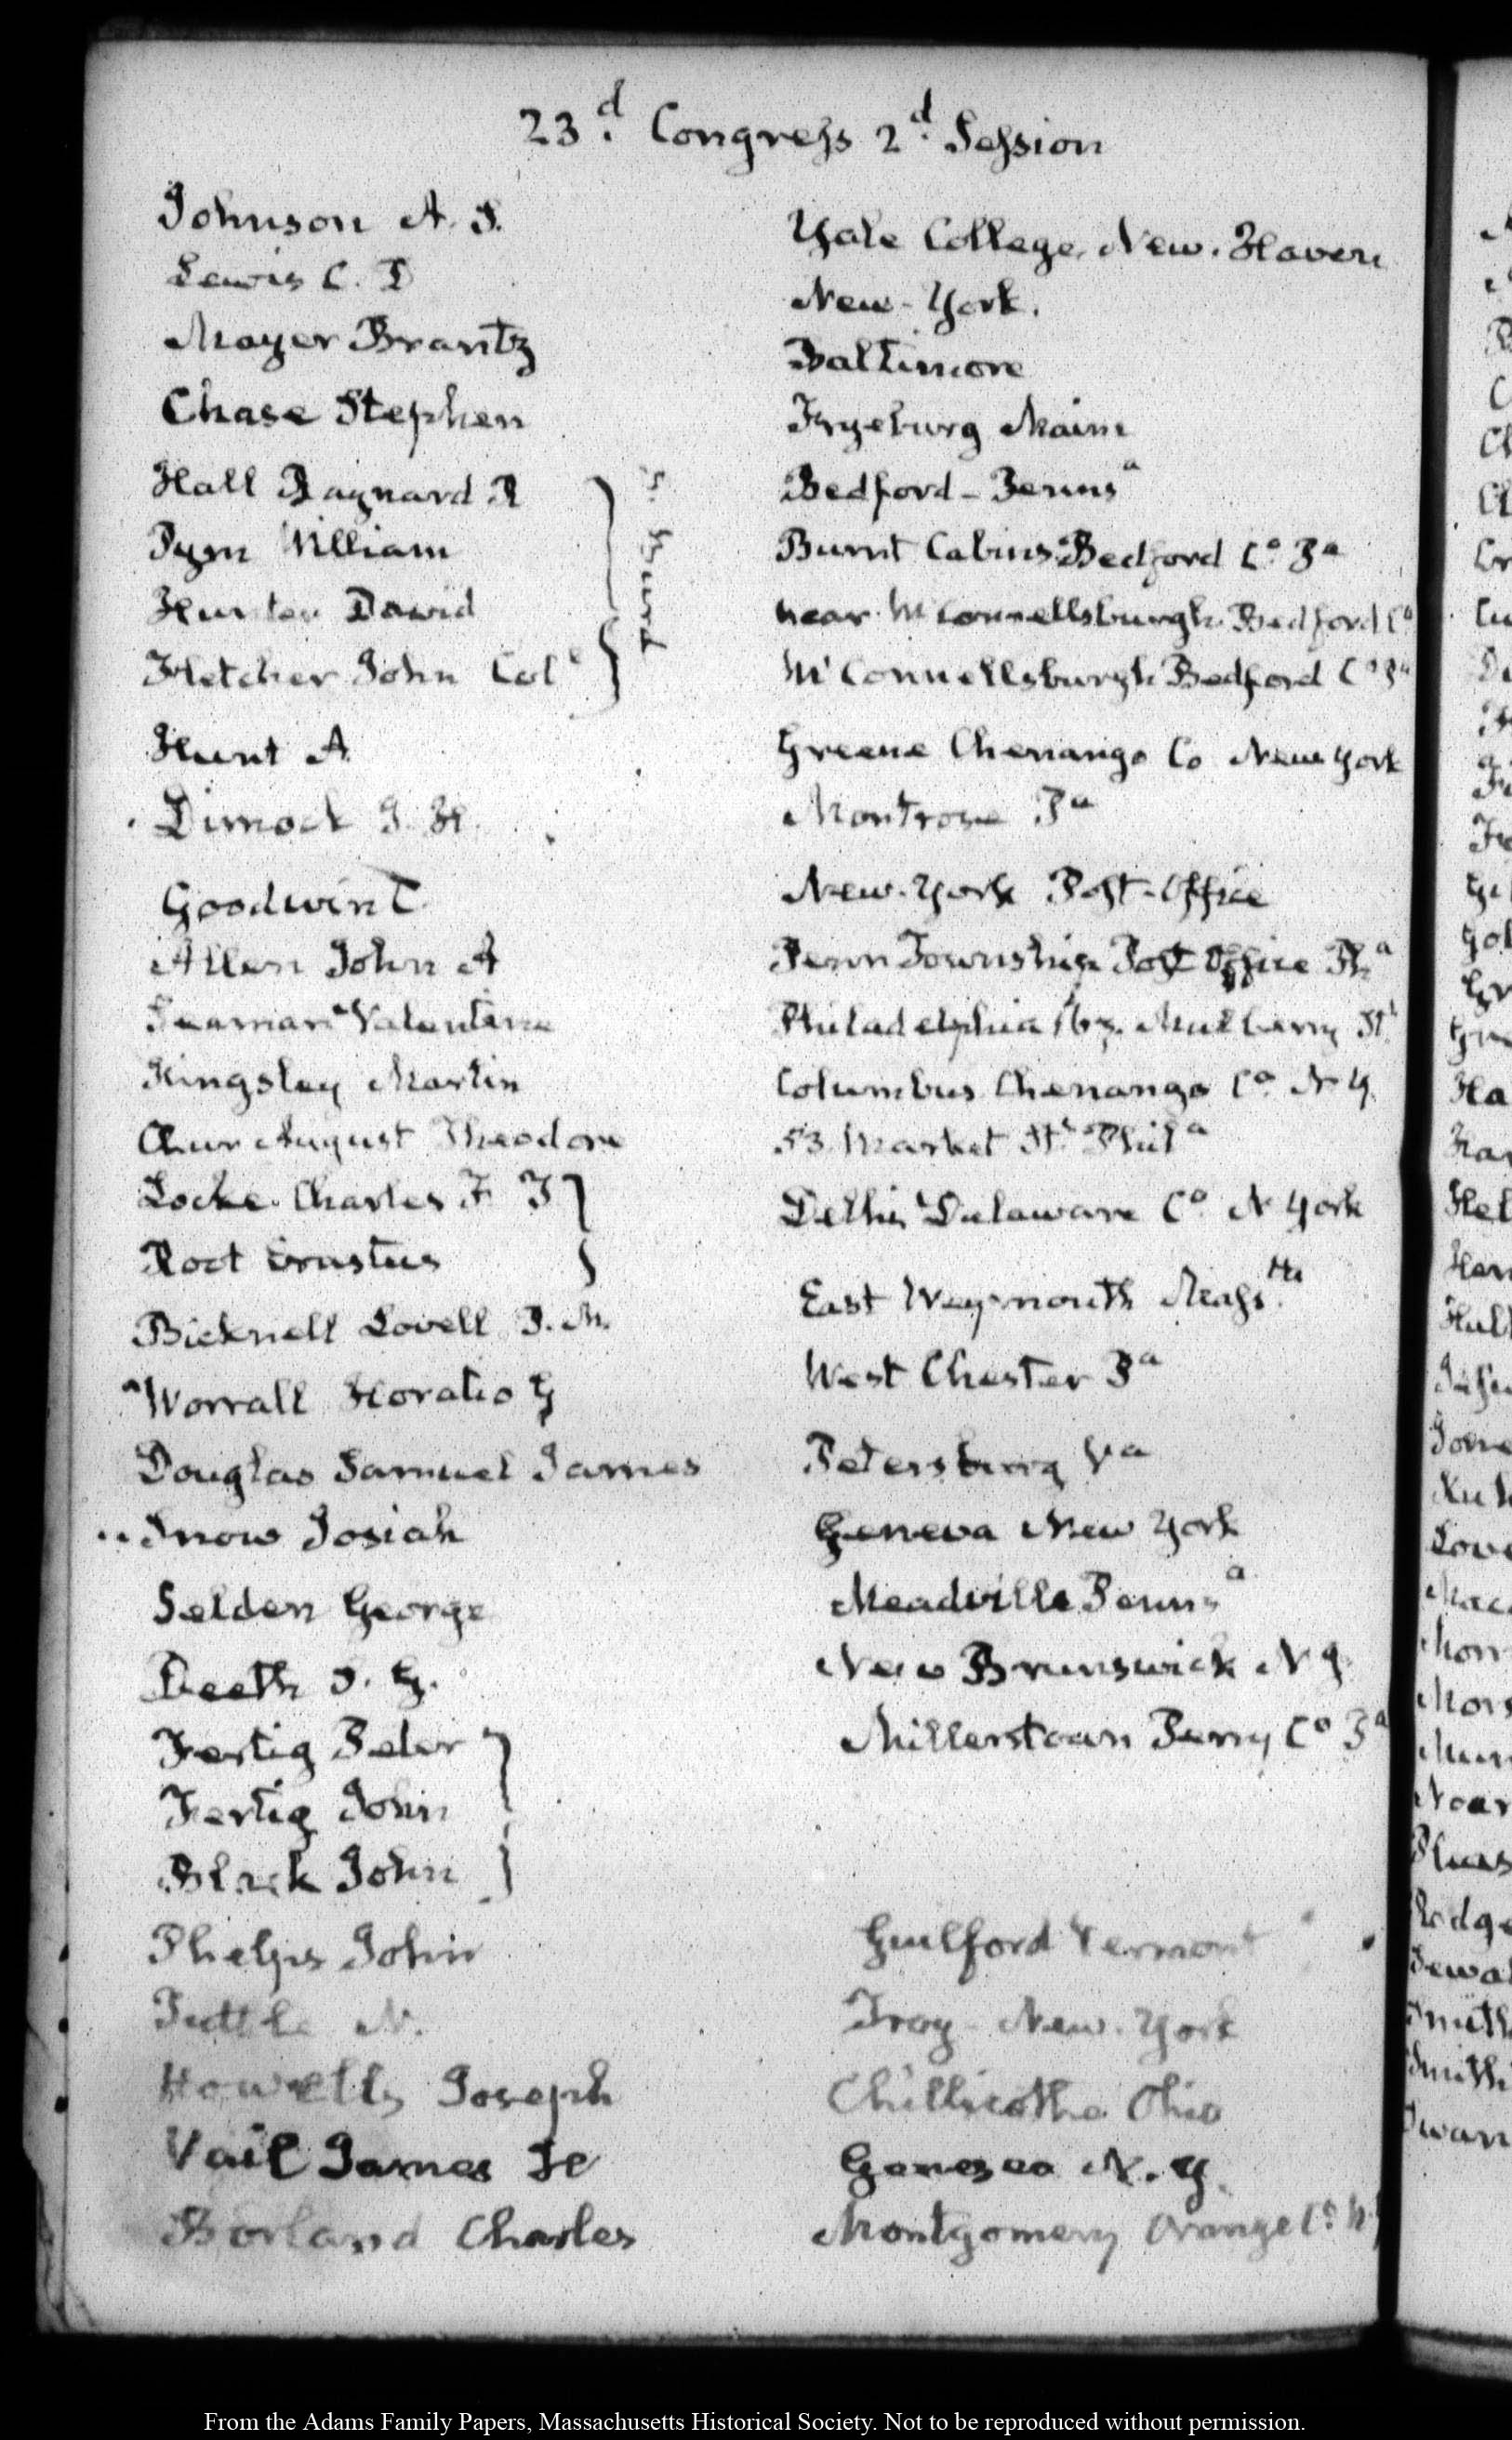 23.d Congress 2.d Session
Johnson A. S. Yale College, New-Haven
Lewis C. D New-York.
Mayer Brantz Baltimore
Chase Stephen Fryeburg Maine
Hall Baynard R Bedford-Pennsa
Pym William Burnt Cabins Bedford Co. Pa
Hunter David near McConnellsburgh Bedford Co
Fletcher John Col McConnellsburgh Bedford Co Pa
Hunt A Greene Chenango Co New York
Dimock J. H. Montrose Pa
Goodwin T. New-York Post-Office
Allen John A Penn Township Post Office Pha
Seaman Valentine Philadelphia Mulberry St
Kingsley Martin Columbus Chenango Co. N Y.
August Theodore 53 Market St. Phila
Locke Charles F Delhi Delaware Co. N York
Root Erastus
Bicknell Lovell East Weymouth Mass.
Worrall Horatio G West Chester Pa
Douglas Samuel James Petersburg Va
Snow Josiah Geneva New York
Selden George Meadville Pennsa
Deeth S. G. New Brunswick N J
Fertig Peter Millerstown Perry Co Pa
Fertig John
Black John
Phelps John Guilford Vermont
Tuttle N. Troy New-York
Howells Joseph Chillicothe Ohio
Vail James Geneseo N. Y.
Borland Charles Montgomery Orange Co. N
From the Adams Family Papers, Massachusetts Historical Society. Not to be reproduced without permission.